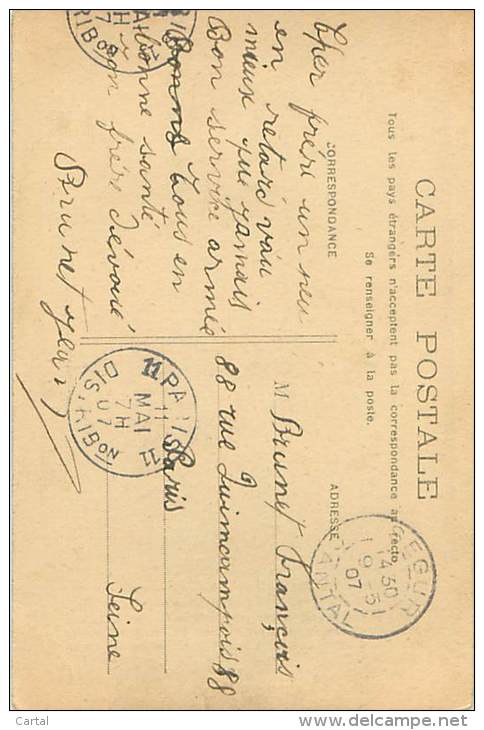 CARTE POSTALE
Tous les pays étrangers n'acceptent pas la correspondance au recto
Se renseigner à la poste.
CORRESPONDANCE
ADRESSE
Cher frère un peu
en retard vau
mieux que jamais
Bon service armée
Bonne tous en
bonne santé
ton frère dévoué
Brunet Jean
M Brunet François
88 rue Quincampois 88
Paris
Seine
PARIS 11
DISTRIBON
7H
11
MAI
07
SEGUR
CANTAL
14 30
9 - 5
07
RIBON
7H
Cartal
www.delcampe.net